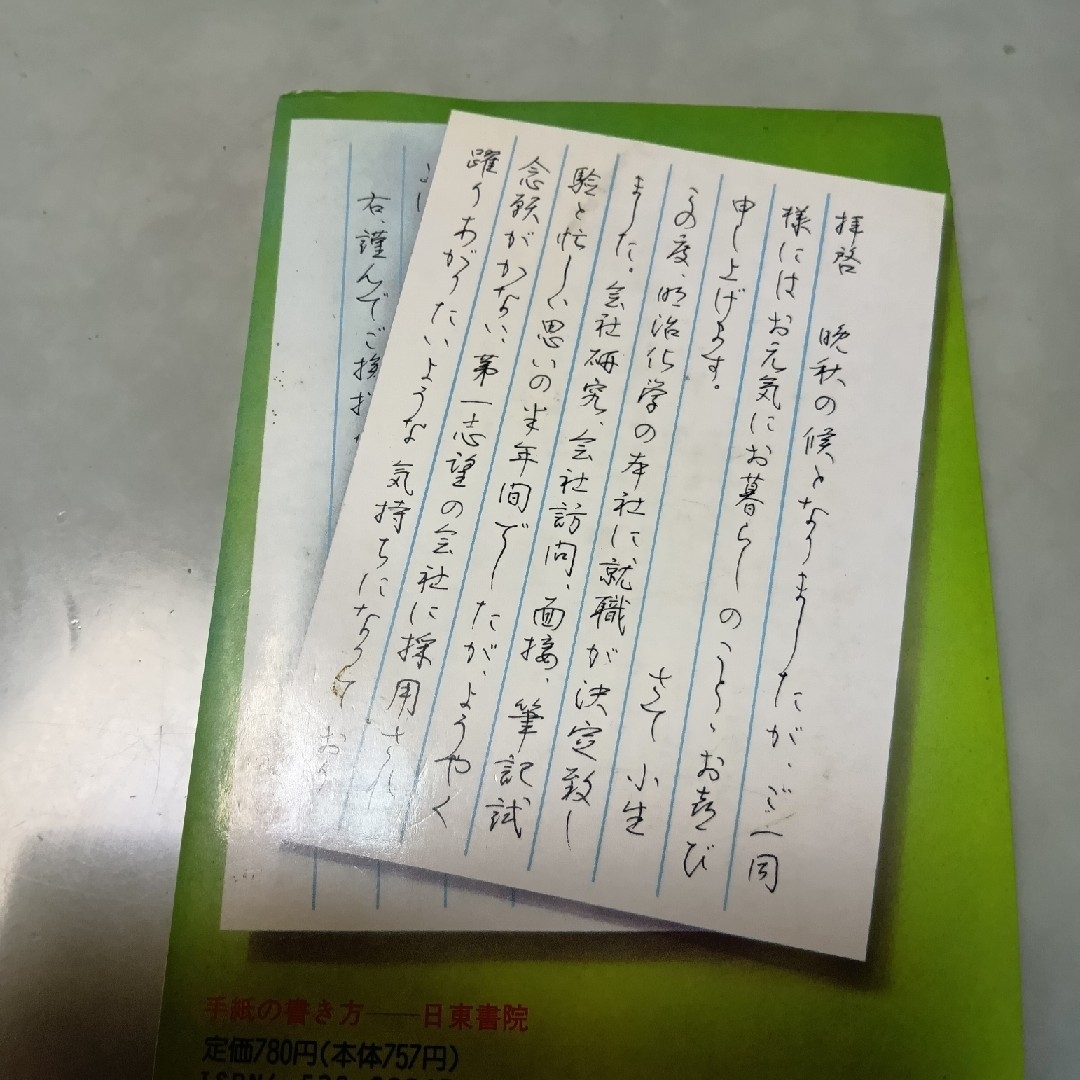 拝啓　晩秋の候となりましたが、ご一同
様にはお元気にお暮らしのこと、お喜び
申し上げます。　さて　小生
この度、明治化学の本社に就職が決定致し
ました。会社研究、会社訪問、面接、筆記試
験と忙しい思いの半年間でしたがようやく
念願がかない、第一志望の会社に採用され
躍りあがりたいような気持ちになっており
右、謹んでご挨拶
手紙の書き方──日東書院
定価780円(本体757円)